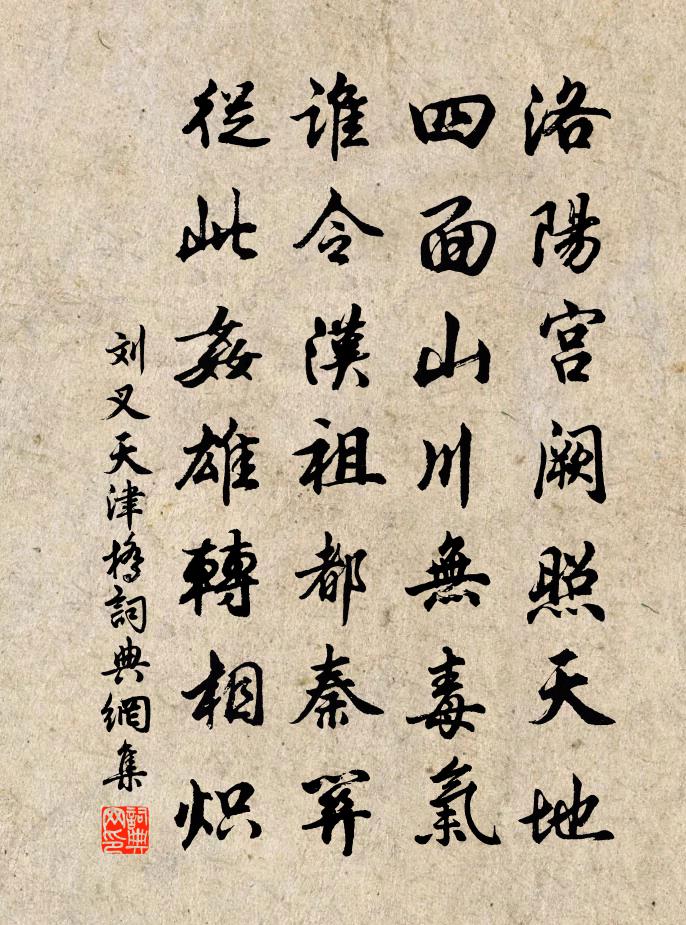 洛陽宫闕照天地
四面山川無毒氣
誰令漢祖都秦關
從此姦雄轉相炽
刘叉天津橋詞典網集
詞典网印